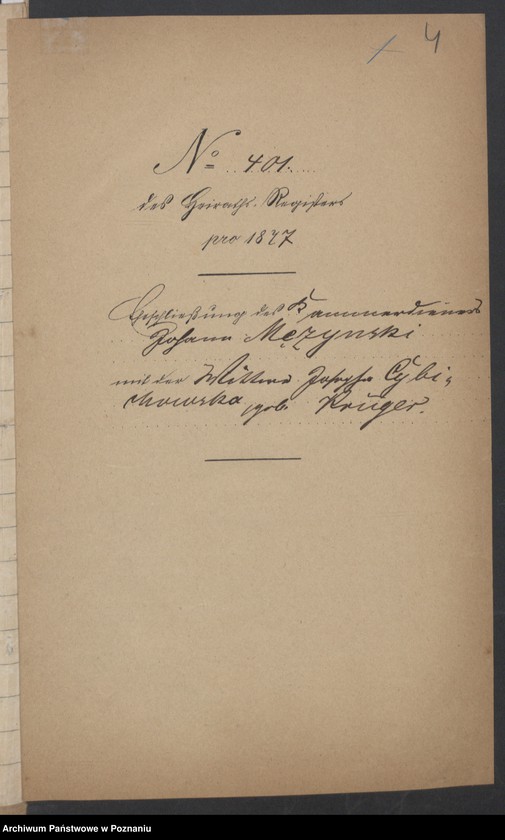 4
No 401.
des Heiraths-Registers
pro 1877
Eheschließung des Kammerdieners
Johann Mężynski
mit der Wittwe Josepha Cybi-
chowska geb. Krüger.
Archiwum Państwowe w Poznaniu